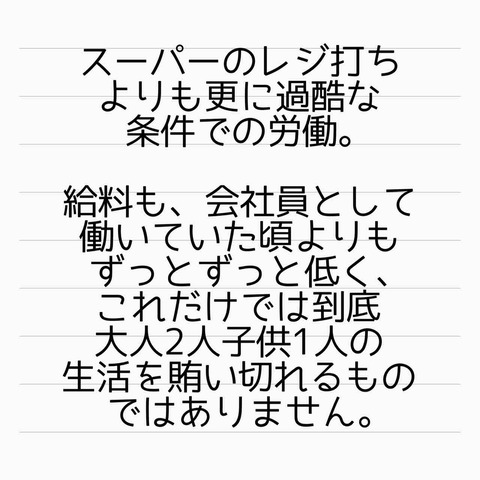 スーパーのレジ打ち
よりも更に過酷な
条件での労働。
給料も、会社員として
働いていた頃よりも
ずっとずっと低く、
これだけでは到底
大人2人子供1人の
生活を賄い切れるもの
ではありません。